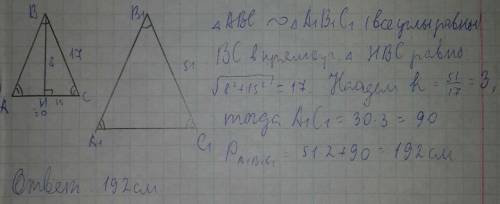 B
8
17
A
H
15
C
30
B₁
51
A₁
C₁
△ABC ∼ △A₁B₁C₁ (все углы равны)
BC в прямоуг. △ HBC равно
√8²+15² = 17. Найдем k = 51/17 = 3,
тогда A₁C₁ = 30·3 = 90
P A₁B₁C₁ = 51·2+90 = 192см
Ответ 192см